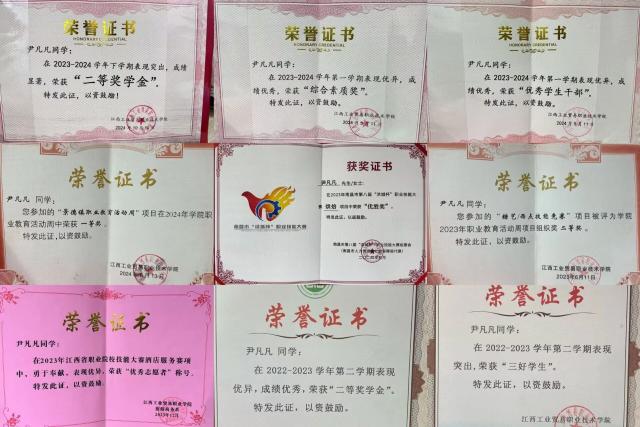 荣誉证书
HONORARY CREDENTIAL
尹凡凡同学：
在 2023-2024 学年下学期表现突出，成绩
显著，荣获“二等奖学金”，
特发此证，以资鼓励！
江西工业贸易职业技术学院
荣誉证书
HONORARY CREDENTIAL
尹凡凡同学：
在 2023-2024 学年第一学期表现优异，成
绩优秀，荣获“综合素质奖”。
特发此证，以资鼓励。
江西工业贸易职业技术学院
荣誉证书
HONORARY CREDENTIAL
尹凡凡同学：
在 2023-2024 学年第一学期表现优异，成
绩优秀，荣获“优秀学生干部”。
特发此证，以资鼓励。
江西工业贸易职业技术学院
荣誉证书
尹凡凡 同学：
您参加的“景德镇职业教育活动周”项目在2024年学院职
业教育活动周中荣获 一等奖。
特发此证，以资鼓励。
江西工业贸易职业技术学院
南昌市“洪城杯”职业技能大赛
获奖证书
尹凡凡 先生/女士：
在2023年南昌市第八届“洪城杯”职业技能大
赛 烘焙 项目中荣获“优胜奖”。
特发此证，以资鼓励。
荣誉证书
尹凡凡 同学：
您参加的“糖艺/西点技能竞赛”项目被评为学院
2023年职业教育活动周项目组织奖 二等奖。
特发此证，以资鼓励。
江西工业贸易职业技术学院
2023年5月11日
荣誉证书
尹凡凡同学：
在2023年江西省职业院校技能大赛酒店服务赛项
中，勇于奉献、表现优异，荣获“优秀志愿者”称号。
特发此证，以资鼓励。
江西工业贸易职业技术学院
2023年12月
荣誉证书
尹凡凡 同学：
在 2022-2023 学年第二学期表现
优异，成绩优秀，荣获“二等奖学金”。
特发此证，以资鼓励。
荣誉证书
尹凡凡 同学：
在 2022-2023 学年第二学期表现
突出，荣获“三好学生”。
特发此证，以资鼓励。
江西工业贸易职业技术学院